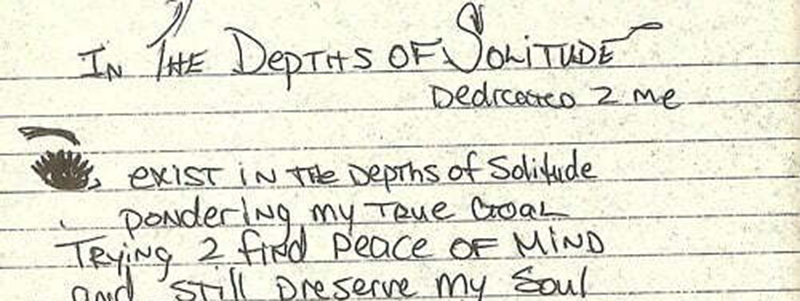 IN THE DEPTHS OF SOLITUDE
Dedicated 2 me
exist in the Depths of Solitude
pondering my true Goal
Trying 2 find peace of MIND
and still preserve my Soul